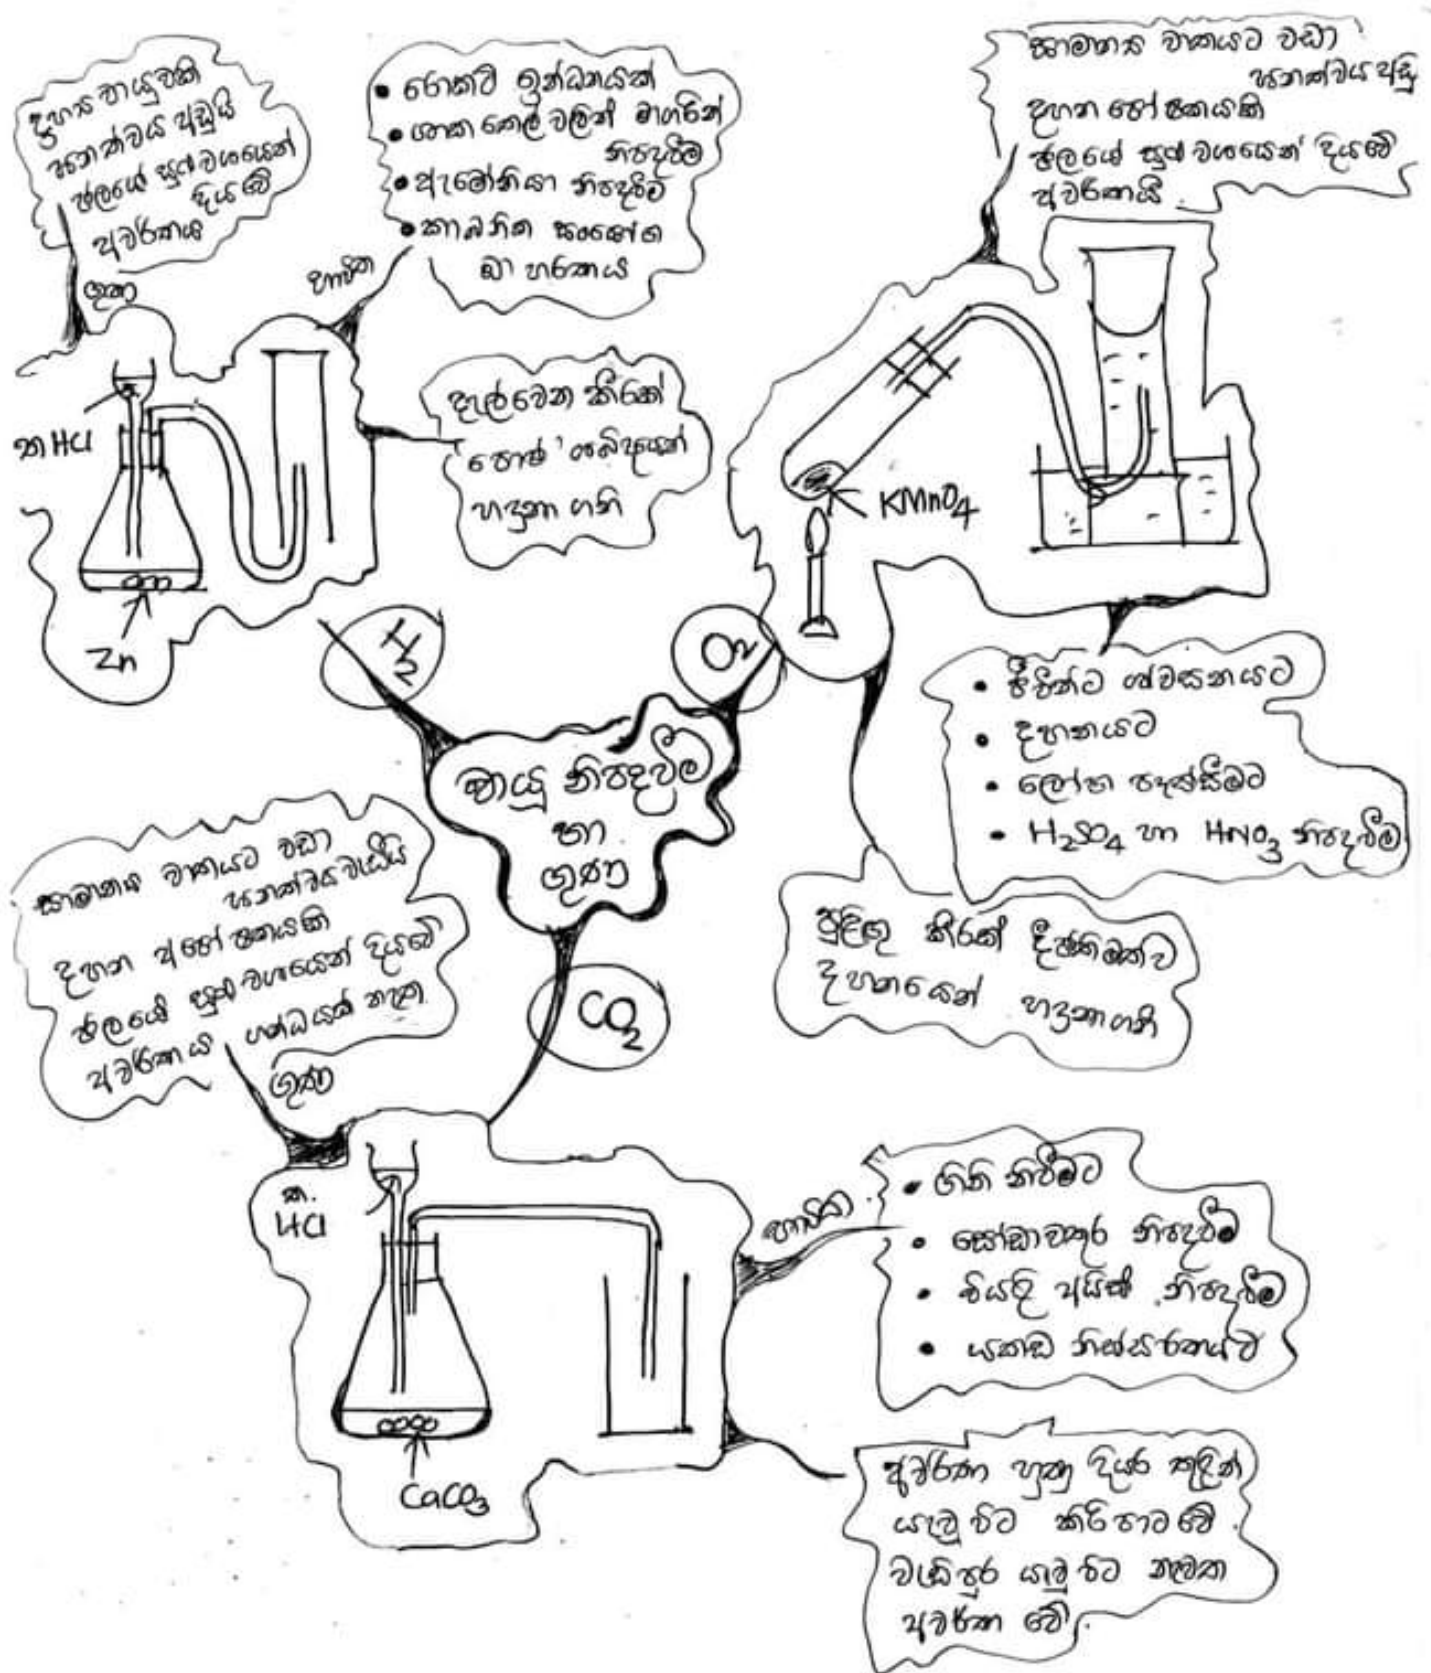 දහ්‍ය වායුවකි
ඝනත්වය අඩුයි
ජලයේ සුළු වශයෙන්
දියවේ
අවර්ණය
ගුණ
• රොකට් ඉන්ධනයක්
• ශාක තෙල් වලින් මාගරින්
නිපදවීම
• ඇමෝනියා නිපදවීම
• කාබනික සංයෝග
ඔක්සිහරණය
භාවිත
ත HCl
Zn
දැල්වෙන කීරක්
'පොප්' ශබ්දයෙන්
හදුනා ගනී
H2
සාමාන්‍ය වාතයට වඩා
ඝනත්වය අඩු
දහන පෝෂකයකි
ජලයේ සුළු වශයෙන් දියවේ
අවර්ණයි.
KMnO4
O2
• ජීවීන්ට ශ්වසනයට
• දහනයට
• ලෝහ පෑස්සීමට
• H2SO4 හා HNO3 නිපදවීම
පුළිඟු කීරක් දීප්තිමත්ව
දහනයෙන් හදුනාගනී
වායු නිපදවීම
හා
ගුණ
සාමාන්‍ය වාතයට වඩා
ඝනත්වය වැඩියි
දහන අපෝෂකයකි
ජලයේ සුළු වශයෙන් දියවේ
අවර්ණය ගන්ධයක් නැත
ගුණ
CO2
ත.
HCl
CaCO3
භාවිත
• ගිනි නිවීමට
• සෝඩාවතුර නිපදවීම
• වියළි අයිස් නිපදවීම
• යකඩ නිස්සාරණයට
අවර්ණ හුණු දියර තුළින්
යැවූ විට කිරිපාට වේ.
වැඩිපුර යැවූ විට නැවත
අවර්ණ වේ.